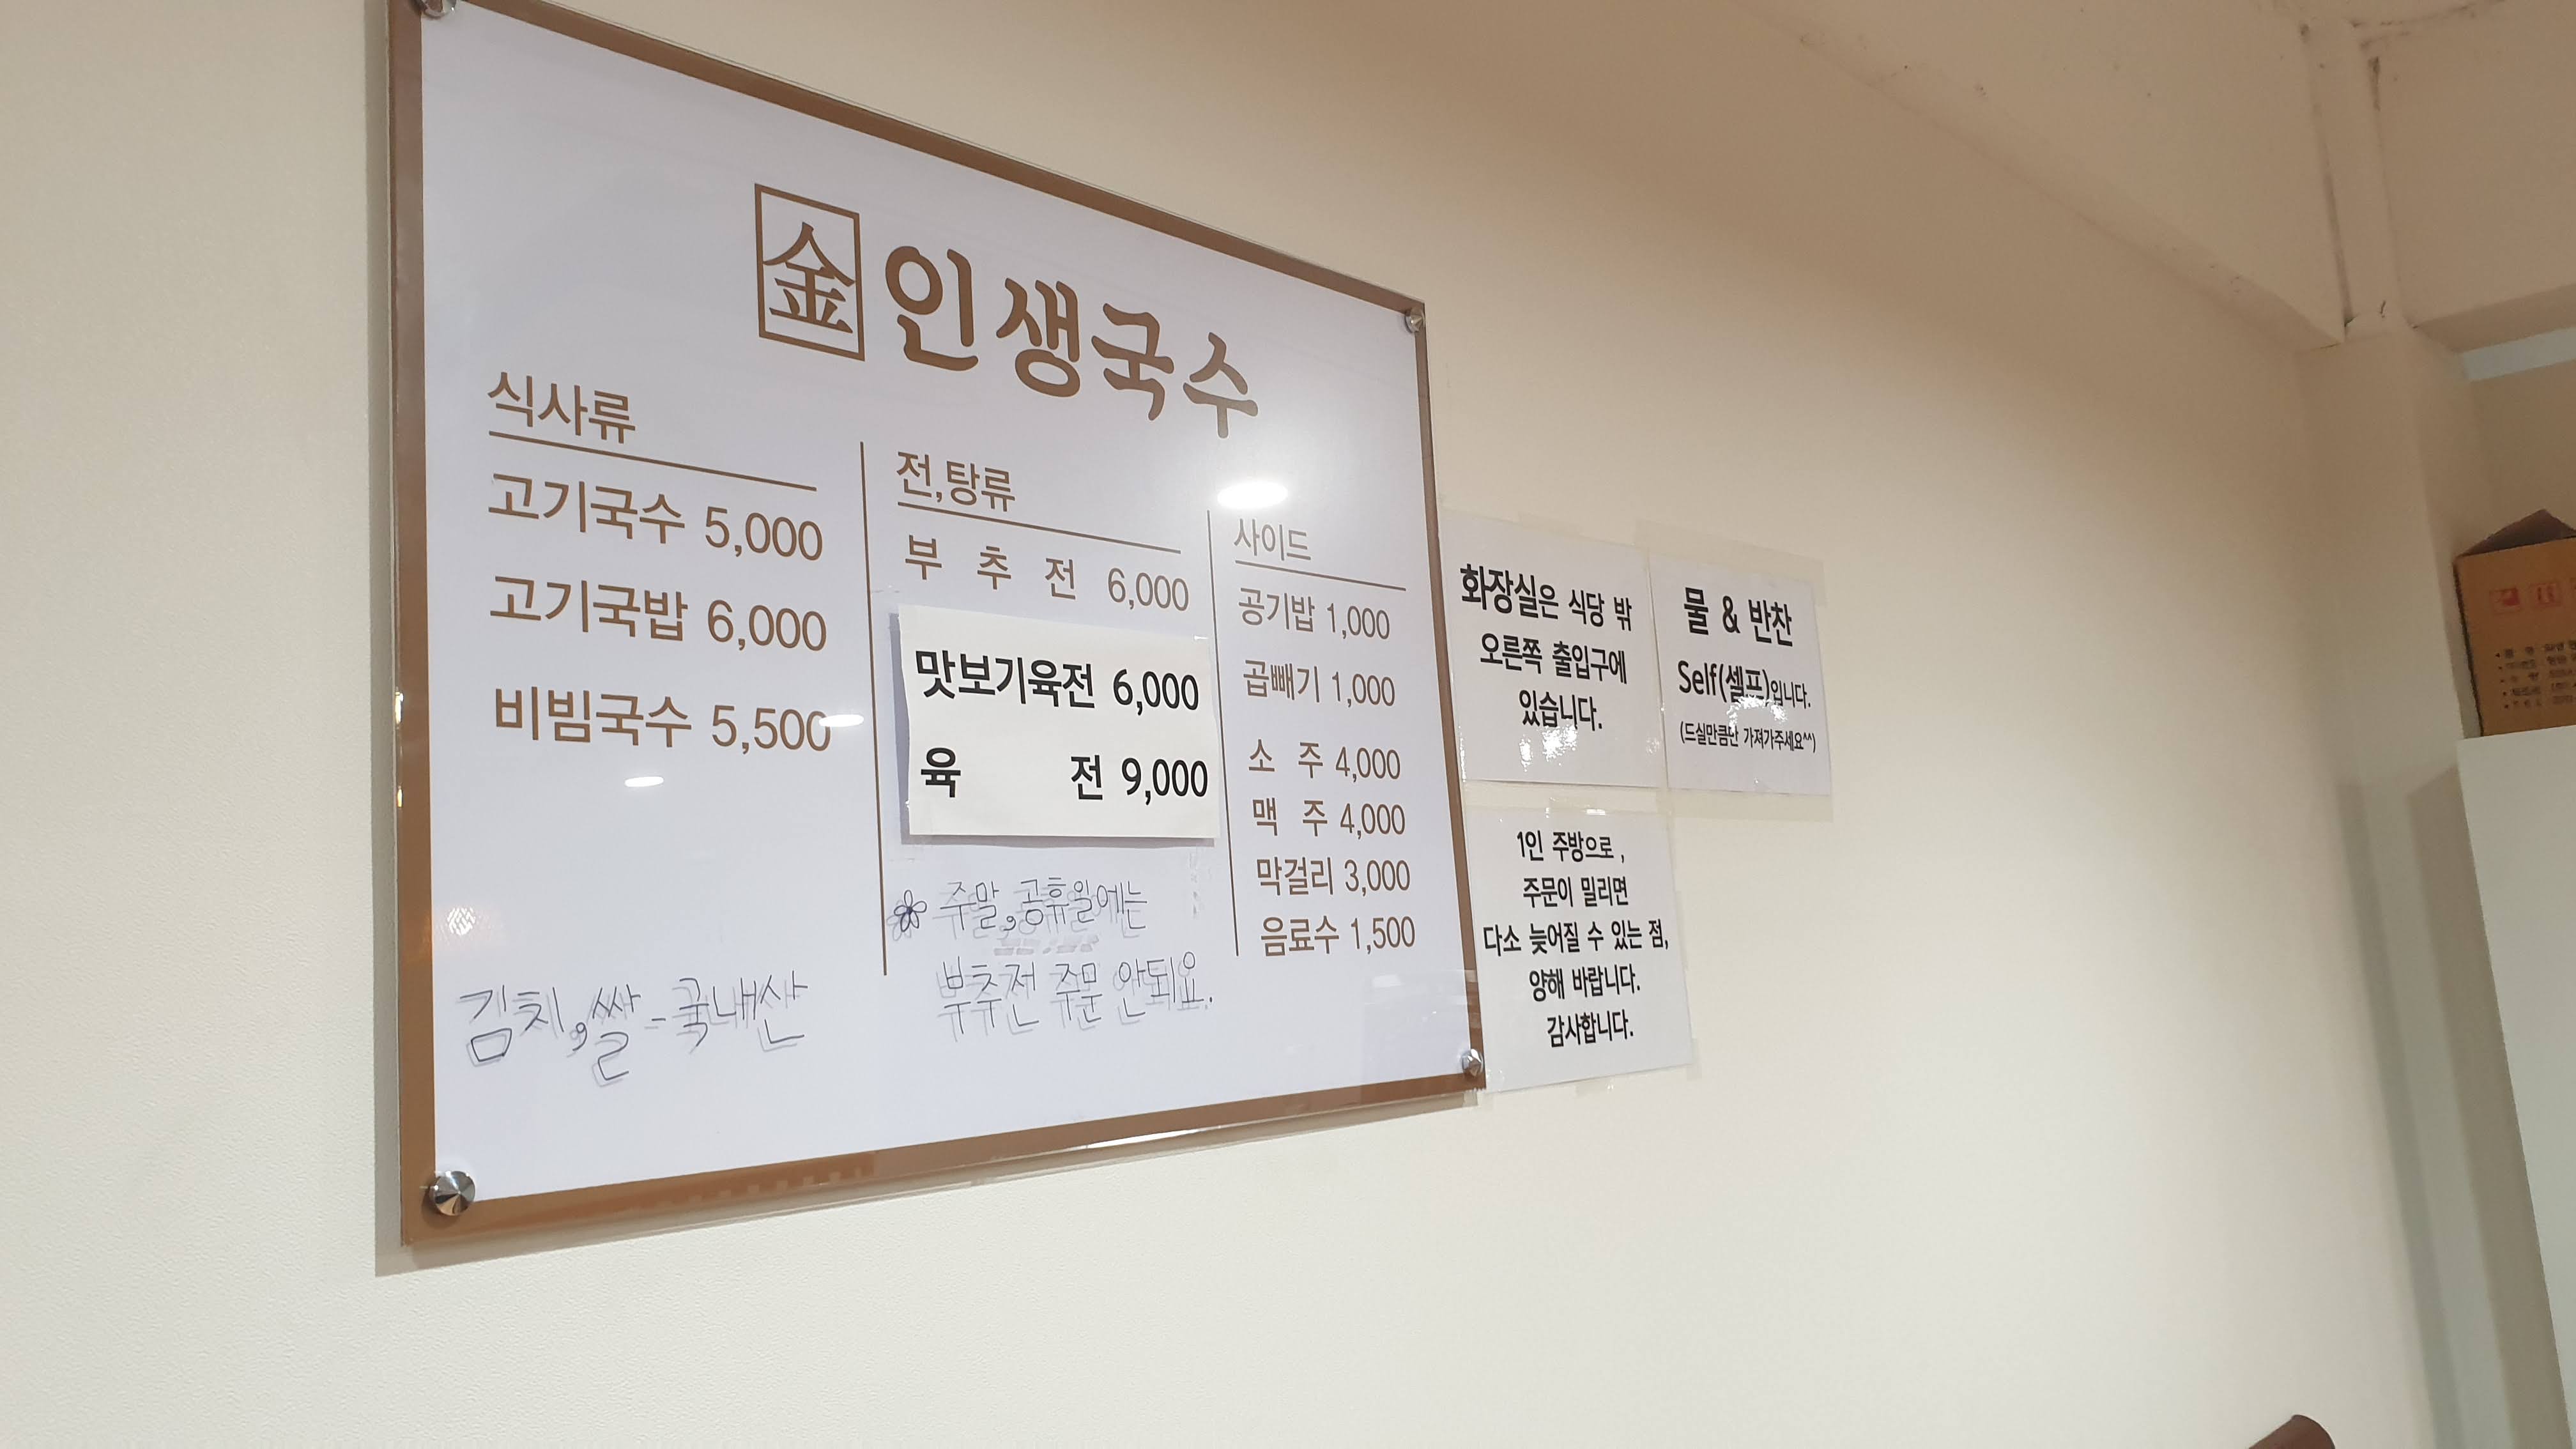 金 인생국수
식사류
고기국수 5,000
고기국밥 6,000
비빔국수 5,500
김치,쌀-국내산
전,탕류
부 추 전 6,000
맛보기육전 6,000
육 전 9,000
주말,공휴일에는
부추전 주문 안돼요.
사이드
공기밥 1,000
곱빼기 1,000
소 주 4,000
맥 주 4,000
막걸리 3,000
음료수 1,500
화장실은 식당 밖
오른쪽 출입구에
있습니다.
물 & 반찬
Self(셀프)입니다.
(드실만큼만 가져가주세요^^)
1인 주방으로 ,
주문이 밀리면
다소 늦어질 수 있는 점,
양해 바랍니다.
감사합니다.